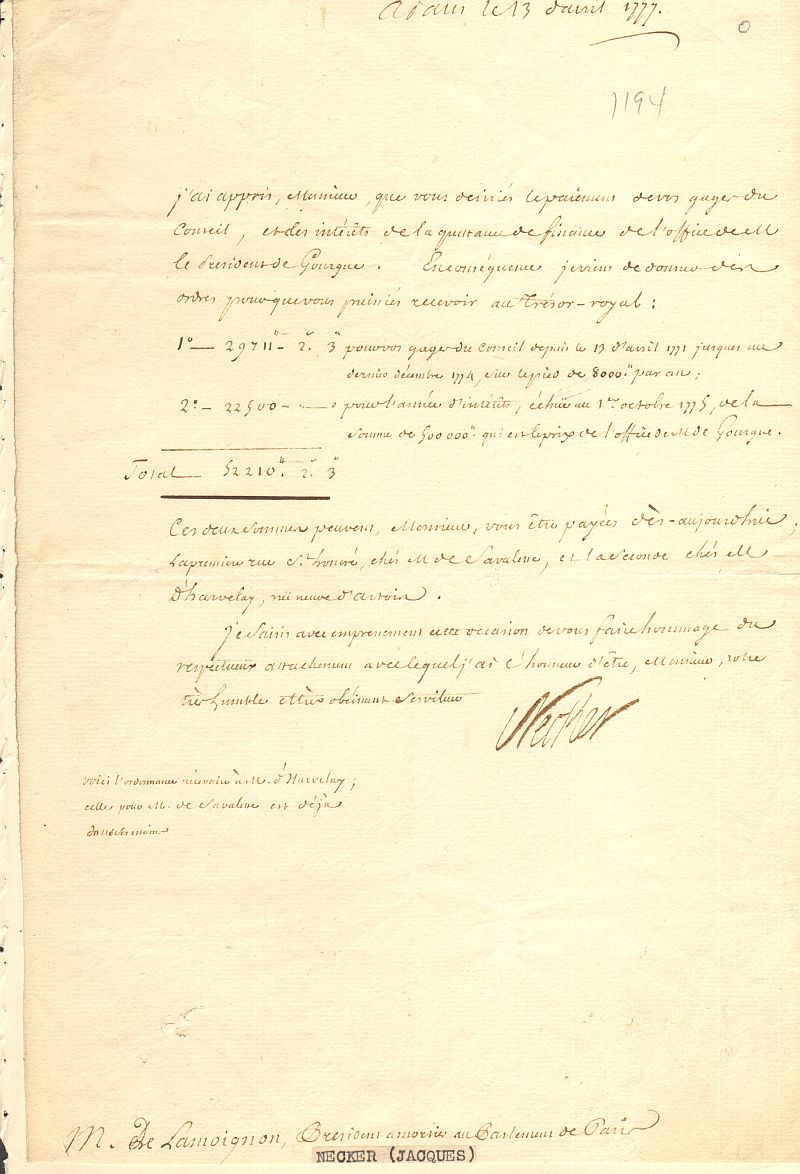 A Paris le 13 d'avril 1777.
1194
j'ai appris, Monsieur, que vous desiriés le paiement de vos gages du
Conseil, et des intérêts de la quittance de finance de l'office de M
le President de Gourgue. En conséquence je viens de donner des
ordres pour que vous puissiés recevoir au Trésor-royal:
1° — 29711 tt — 2. s 3 d pour vos gages du Conseil depuis le 13 d'avril 1771 jusques au
dernier décembre 1774, sur le pied de 8000 tt par an;
2° — 22500 — " — " pour l'année d'intérêts, échue au 1er octobre 1775, de la
somme de 500000 tt qui est le prix de l'office de M de Gourgue.
Total — 52210 tt. 2. s 3 d
Ces deux sommes peuvent, Monsieur, vous être payées dès-aujourdhui;
la premiere rue St. honoré, chés M de Savalete, et la seconde chés M
D'harvelay, rüe neuve d'artois.
Je saisis avec empressement cette occasion de vous faire hommage du
respectueux attachement avec lequel j'ai l'honneur d'être, Monsieur, votre
très humble et très obéissant Serviteur
Necker
voici l'ordonnance nécessaire à M. d'Harvelay;
celle pour M. de Savalete est déja
dans ses mains
M. De Lamoignon, President a mortier au Parlement de Paris
NECKER (JACQUES)